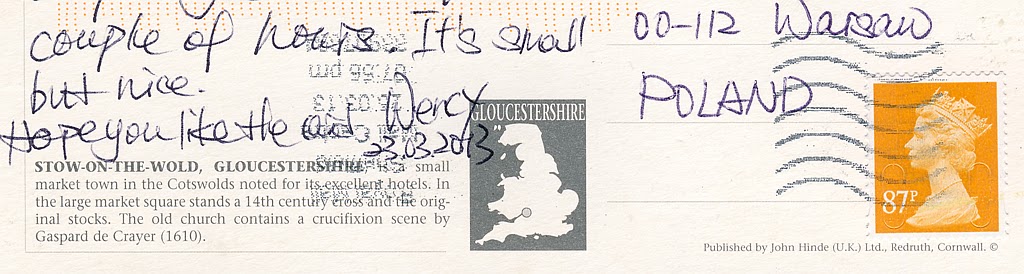 couple of hours. It's small
but nice.
Hope you like the card. Wercy
23.03.2013
00-112 Warsaw
POLAND
STOW-ON-THE-WOLD, GLOUCESTERSHIRE, is a small
market town in the Cotswolds noted for its excellent hotels. In
the large market square stands a 14th century cross and the orig-
inal stocks. The old church contains a crucifixion scene by
Gaspard de Crayer (1610).
GLOUCESTERSHIRE
87P
Published by John Hinde (U.K.) Ltd., Redruth, Cornwall. ©